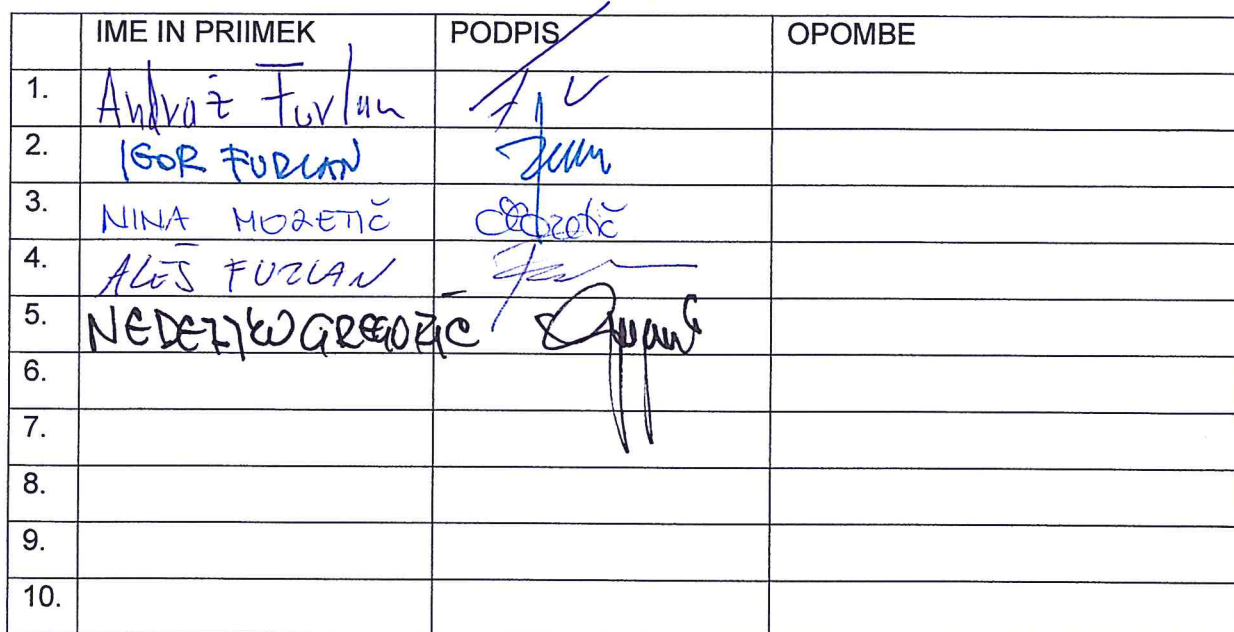 IME IN PRIIMEK PODPIS OPOMBE
1. Andraž Furlan
2. IGOR FURLAN
3. NINA MOZETIČ Mozetič
4. ALEŠ FURLAN
5. NEDELJKO GREGORIČ
6.
7.
8.
9.
10.